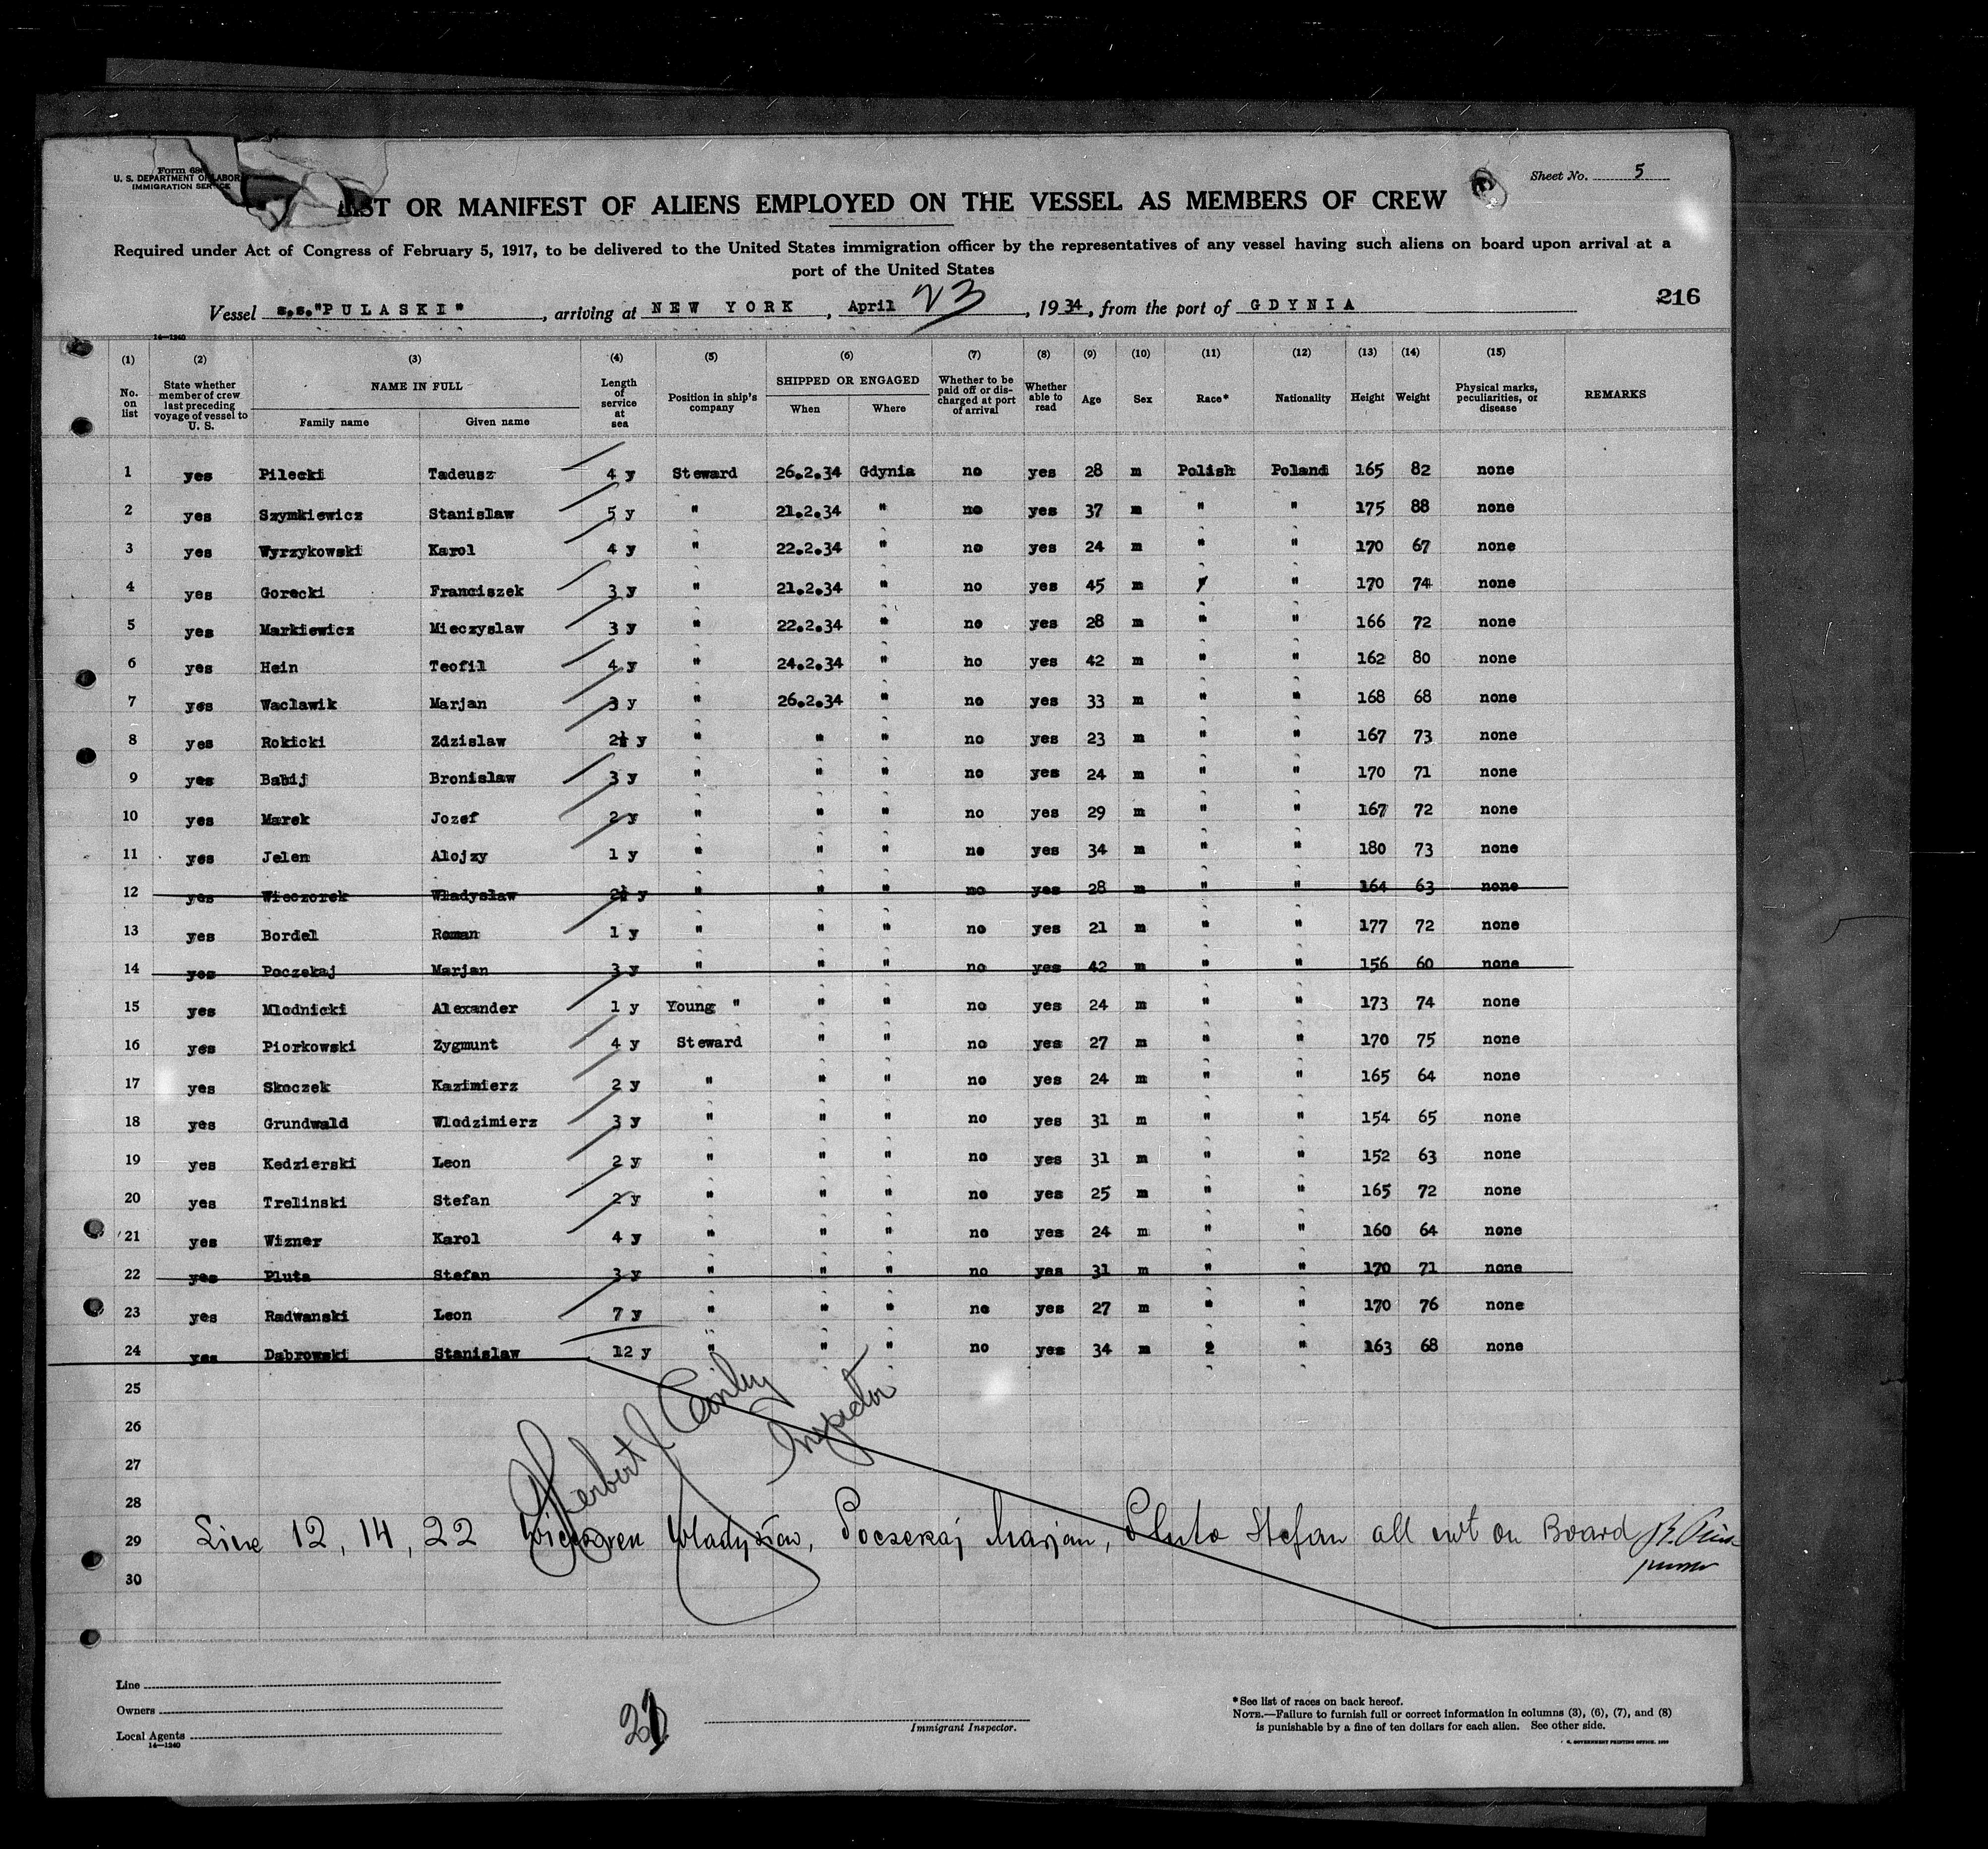 Form 68
U. S. DEPARTMENT OF LABOR
IMMIGRATION SERVICE
Sheet No. 5
LIST OR MANIFEST OF ALIENS EMPLOYED ON THE VESSEL AS MEMBERS OF CREW
Required under Act of Congress of February 5, 1917, to be delivered to the United States immigration officer by the representatives of any vessel having such aliens on board upon arrival at a
port of the United States
Vessel s.s."PULASKI", arriving at NEW YORK, April 23, 1934, from the port of GDYNIA
216
14—1240
(1) (2) (3) (4) (5) (6) (7) (8) (9) (10) (11) (12) (13) (14) (15)
No. on list State whether member of crew last preceding voyage of vessel to U. S. NAME IN FULL Family name Given name Length of service at sea Position in ship's company SHIPPED OR ENGAGED When Where Whether to be paid off or discharged at port of arrival Whether able to read Age Sex Race* Nationality Height Weight Physical marks, peculiarities, or disease REMARKS
1 yes Pilecki Tadeusz 4 y Steward 26.2.34 Gdynia no yes 28 m Polish Poland 165 82 none
2 yes Szymkiewicz Stanislaw 5 y " 21.2.34 " no yes 37 m " " 175 88 none
3 yes Wyrzykowski Karol 4 y " 22.2.34 " no yes 24 m " " 170 67 none
4 yes Gorecki Franciszek 3 y " 21.2.34 " no yes 45 m " " 170 74 none
5 yes Markiewicz Mieczyslaw 3 y " 22.2.34 " no yes 28 m " " 166 72 none
6 yes Hein Teofil 4 y " 24.2.34 " ho yes 42 m " " 162 80 none
7 yes Waclawik Marjan 3 y " 26.2.34 " no yes 33 m " " 168 68 none
8 yes Rokicki Zdzislaw 2½ y " " " no yes 23 m " " 167 73 none
9 yes Babij Bronislaw 3 y " " " no yes 24 m " " 170 71 none
10 yes Marek Jozef 2 y " " " no yes 29 m " " 167 72 none
11 yes Jelen Alojzy 1 y " " " no yes 34 m " " 180 73 none
12 yes Wieczorek Wladyslaw 2½ y " " " no yes 28 m " " 164 63 none
13 yes Bordel Roman 1 y " " " no yes 21 m " " 177 72 none
14 yes Poczekaj Marjan 3 y " " " no yes 42 m " " 156 60 none
15 yes Mlodnicki Alexander 1 y Young " " " no yes 24 m " " 173 74 none
16 yes Piorkowski Zygmunt 4 y Steward " " no yes 27 m " " 170 75 none
17 yes Skoczek Kazimierz 2 y " " " no yes 24 m " " 165 64 none
18 yes Grundwald Wlodzimierz 3 y " " " no yes 31 m " " 154 65 none
19 yes Kedzierski Leon 2 y " " " no yes 31 m " " 152 63 none
20 yes Trelinski Stefan 2 y " " " no yes 25 m " " 165 72 none
21 yes Wizner Karol 4 y " " " no yes 24 m " " 160 64 none
22 yes Pluta Stefan 3 y " " " no yes 31 m " " 170 71 none
23 yes Radwanski Leon 7 y " " " no yes 27 m " " 170 76 none
24 yes Dabrowski Stanislaw 12 y " " " no yes 34 m 2 " 163 68 none
25
26
Herbert J. Conley
Inspector
27
28
29 Line 12, 14, 22 Wladyslaw, Poczekaj Marjan, Pluta Stefan all not on Board
purser
30
Line
Owners
Local Agents
14—1240
21
Immigrant Inspector.
*See list of races on back hereof.
NOTE.—Failure to furnish full or correct information in columns (3), (6), (7), and (8)
is punishable by a fine of ten dollars for each alien. See other side.
GOVERNMENT PRINTING OFFICE